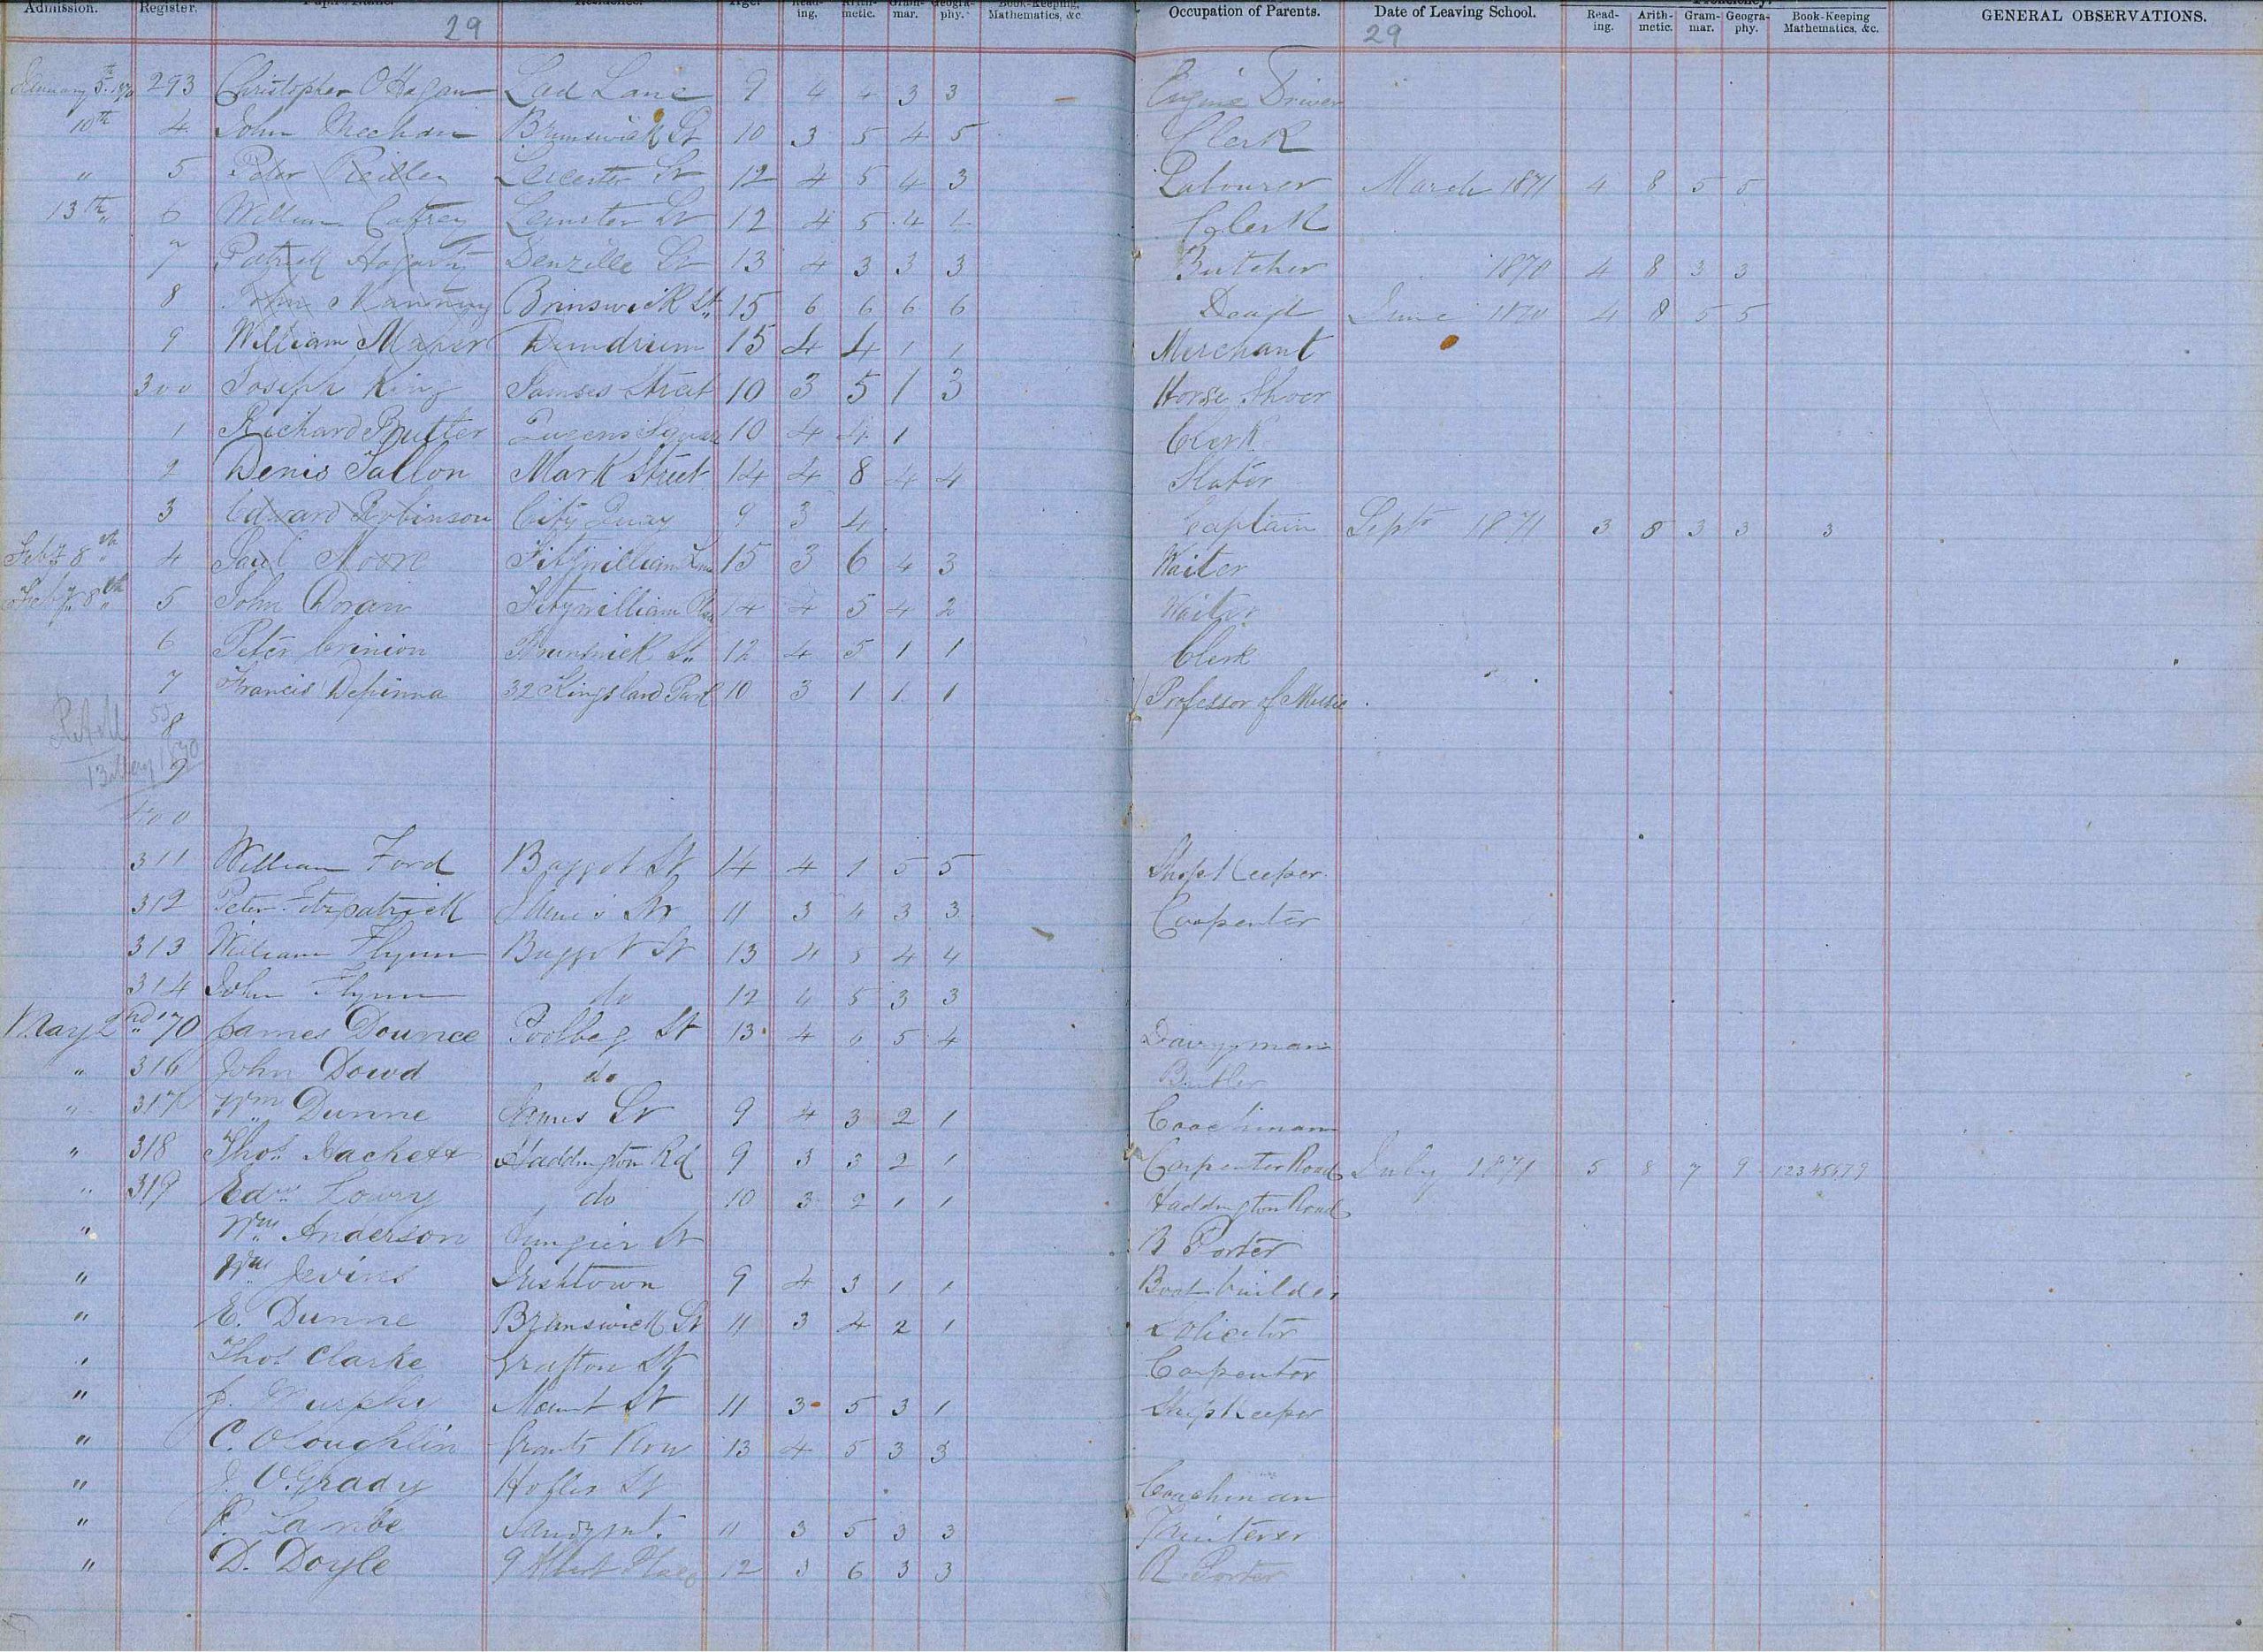 Admission. Register. Pupil's Name. Residence. Age. Read-ing. Arith-metic. Gram-mar. Geogra-phy. Book-Keeping, Mathematics, &c. Occupation of Parents. Date of Leaving School. Proficiency. Read-ing. Arith-metic. Gram-mar. Geogra-phy. Book-Keeping Mathematics, &c. GENERAL OBSERVATIONS.
29 29
January 5th 1870 293 Christopher O'Hagan Lad Lane 9 4 4 3 3 Engine Driver
10th 4 John Meehan Brunswick St 10 3 5 4 5 Clerk
" 5 Peter Reilly Leicester St 12 4 5 4 3 Labourer March 1871 4 8 5 5
13th " 6 William Cafrey Leinster St 12 4 5 4 Clerk
7 Patrick Hogarty Denzille St 13 4 3 3 3 Butcher 1870 4 8 3 3
8 John Manning Brinswick St 15 6 6 6 6 Dead June 1870 4 8 5 5
9 William Maher Dundrum 15 4 4 1 1 Merchant
300 Joseph King Jameses Street 10 3 5 1 3 Horse Shoer
1 Richard Butler Queens Square 10 4 4 1 Clerk
2 Denis Tallon Mark Street 14 4 8 4 4 Slator
3 Edward Robinson City Quay 9 3 4 Captain Septr 1871 3 8 3 3 3
Feby 8th 4 Paul Moore Fitzwilliam Lane 15 3 6 4 3 Waiter
Feby 8th 5 John Doran Fitzwilliam Place 14 4 5 4 2 Waiter
6 Peter Crinion Brunswick St 12 4 5 1 1 Clerk
7 Francis Depinna 32 Kingsland Park 10 3 1 1 1 Professor of Music
8
9
13 May 1870
400
311 William Ford Baggot St 14 4 1 5 5 Shop Keeper
312 Peter Fitzpatrick James Str 11 3 4 3 3 Carpenter
313 William Flynn Baggot St 13 4 5 4 4
314 John Flynn do 12 4 5 3 3
May 2nd '70 James Dounce Poolbeg St 13 4 6 5 4 Dairyman
" 316 John Dowd do Butler
" 317 Wm Dunne James St 9 4 3 2 1 Coachman
" 318 Thos. Hackett Haddington Rd 9 3 3 2 1 Carpenter Road July 1871 5 8 7 9 12345679
" 319 Edw Lowry do 10 3 2 1 1 Haddington Road
" Wm Anderson St R Porter
" Wm Jevins Irishtown 9 4 3 1 1 Boat builder
" E. Dunne Brunswick St 11 3 4 2 1 Solicitor
" Thos Clarke Grafton St Carpenter
" J. Murphy Mount St 11 3 5 3 1 Shop Keeper
" C. OLoughlin Grants Row 13 4 5 3 3
" J. O'Grady Holles St Coachman
" P. Lambe Sandymt. 11 3 5 3 3
" D. Doyle 9 Albert Place 12 3 6 3 3 R. Porter